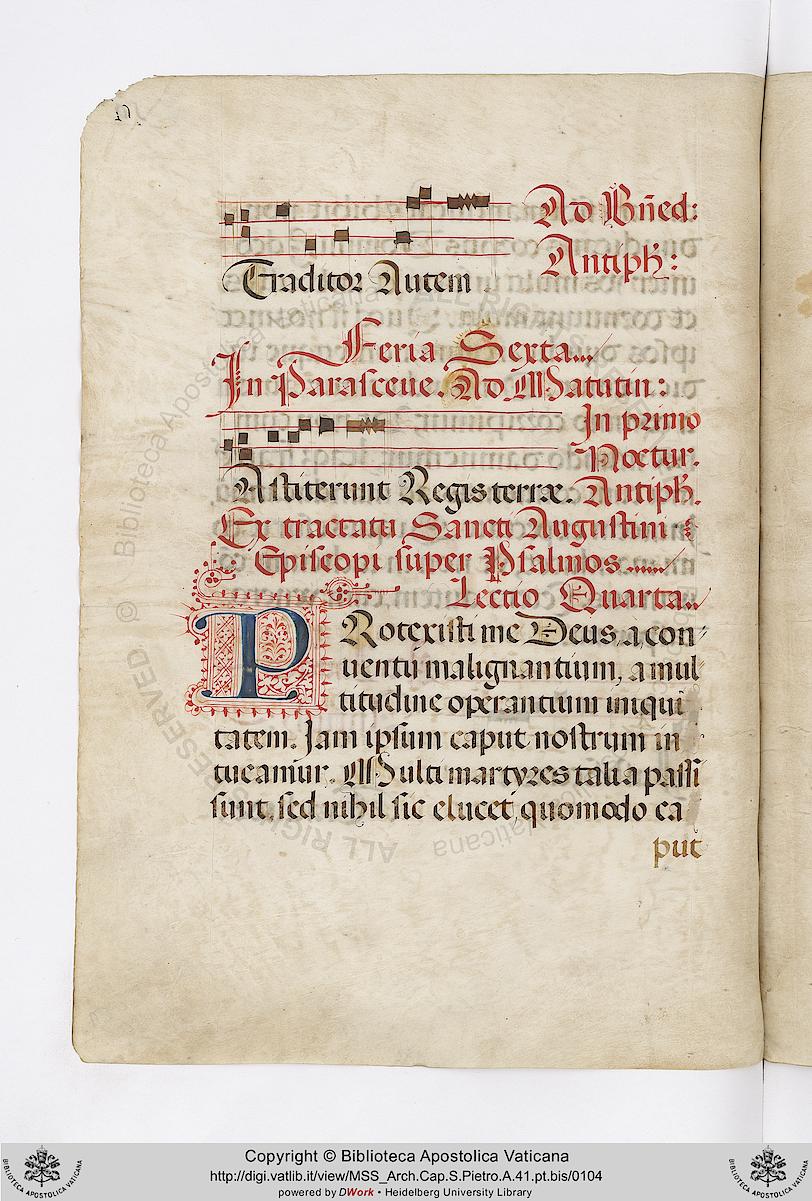 Ad Bñed:
Antiph:
Traditor Autem
Feria Sexta...
In Parasceue. Ad Matutin:
In primo
Noctur.
Astiterunt Regis terræ. Antiph.
Ex tractatu Sancti Augustini
Episcopi super Psalmos......
Lectio Quarta..
PRotexisti me Deus, a con-
uentu malignantium, a mul
titudine operantium iniqui
tatem. Jam ipsum caput nostrum in
tueamur. Multi martyres talia passi
sunt, sed nihil sic elucet, quomodo ca
put
Copyright © Biblioteca Apostolica Vaticana
http://digi.vatlib.it/view/MSS_Arch.Cap.S.Pietro.A.41.pt.bis/0104
powered by DWork • Heidelberg University Library